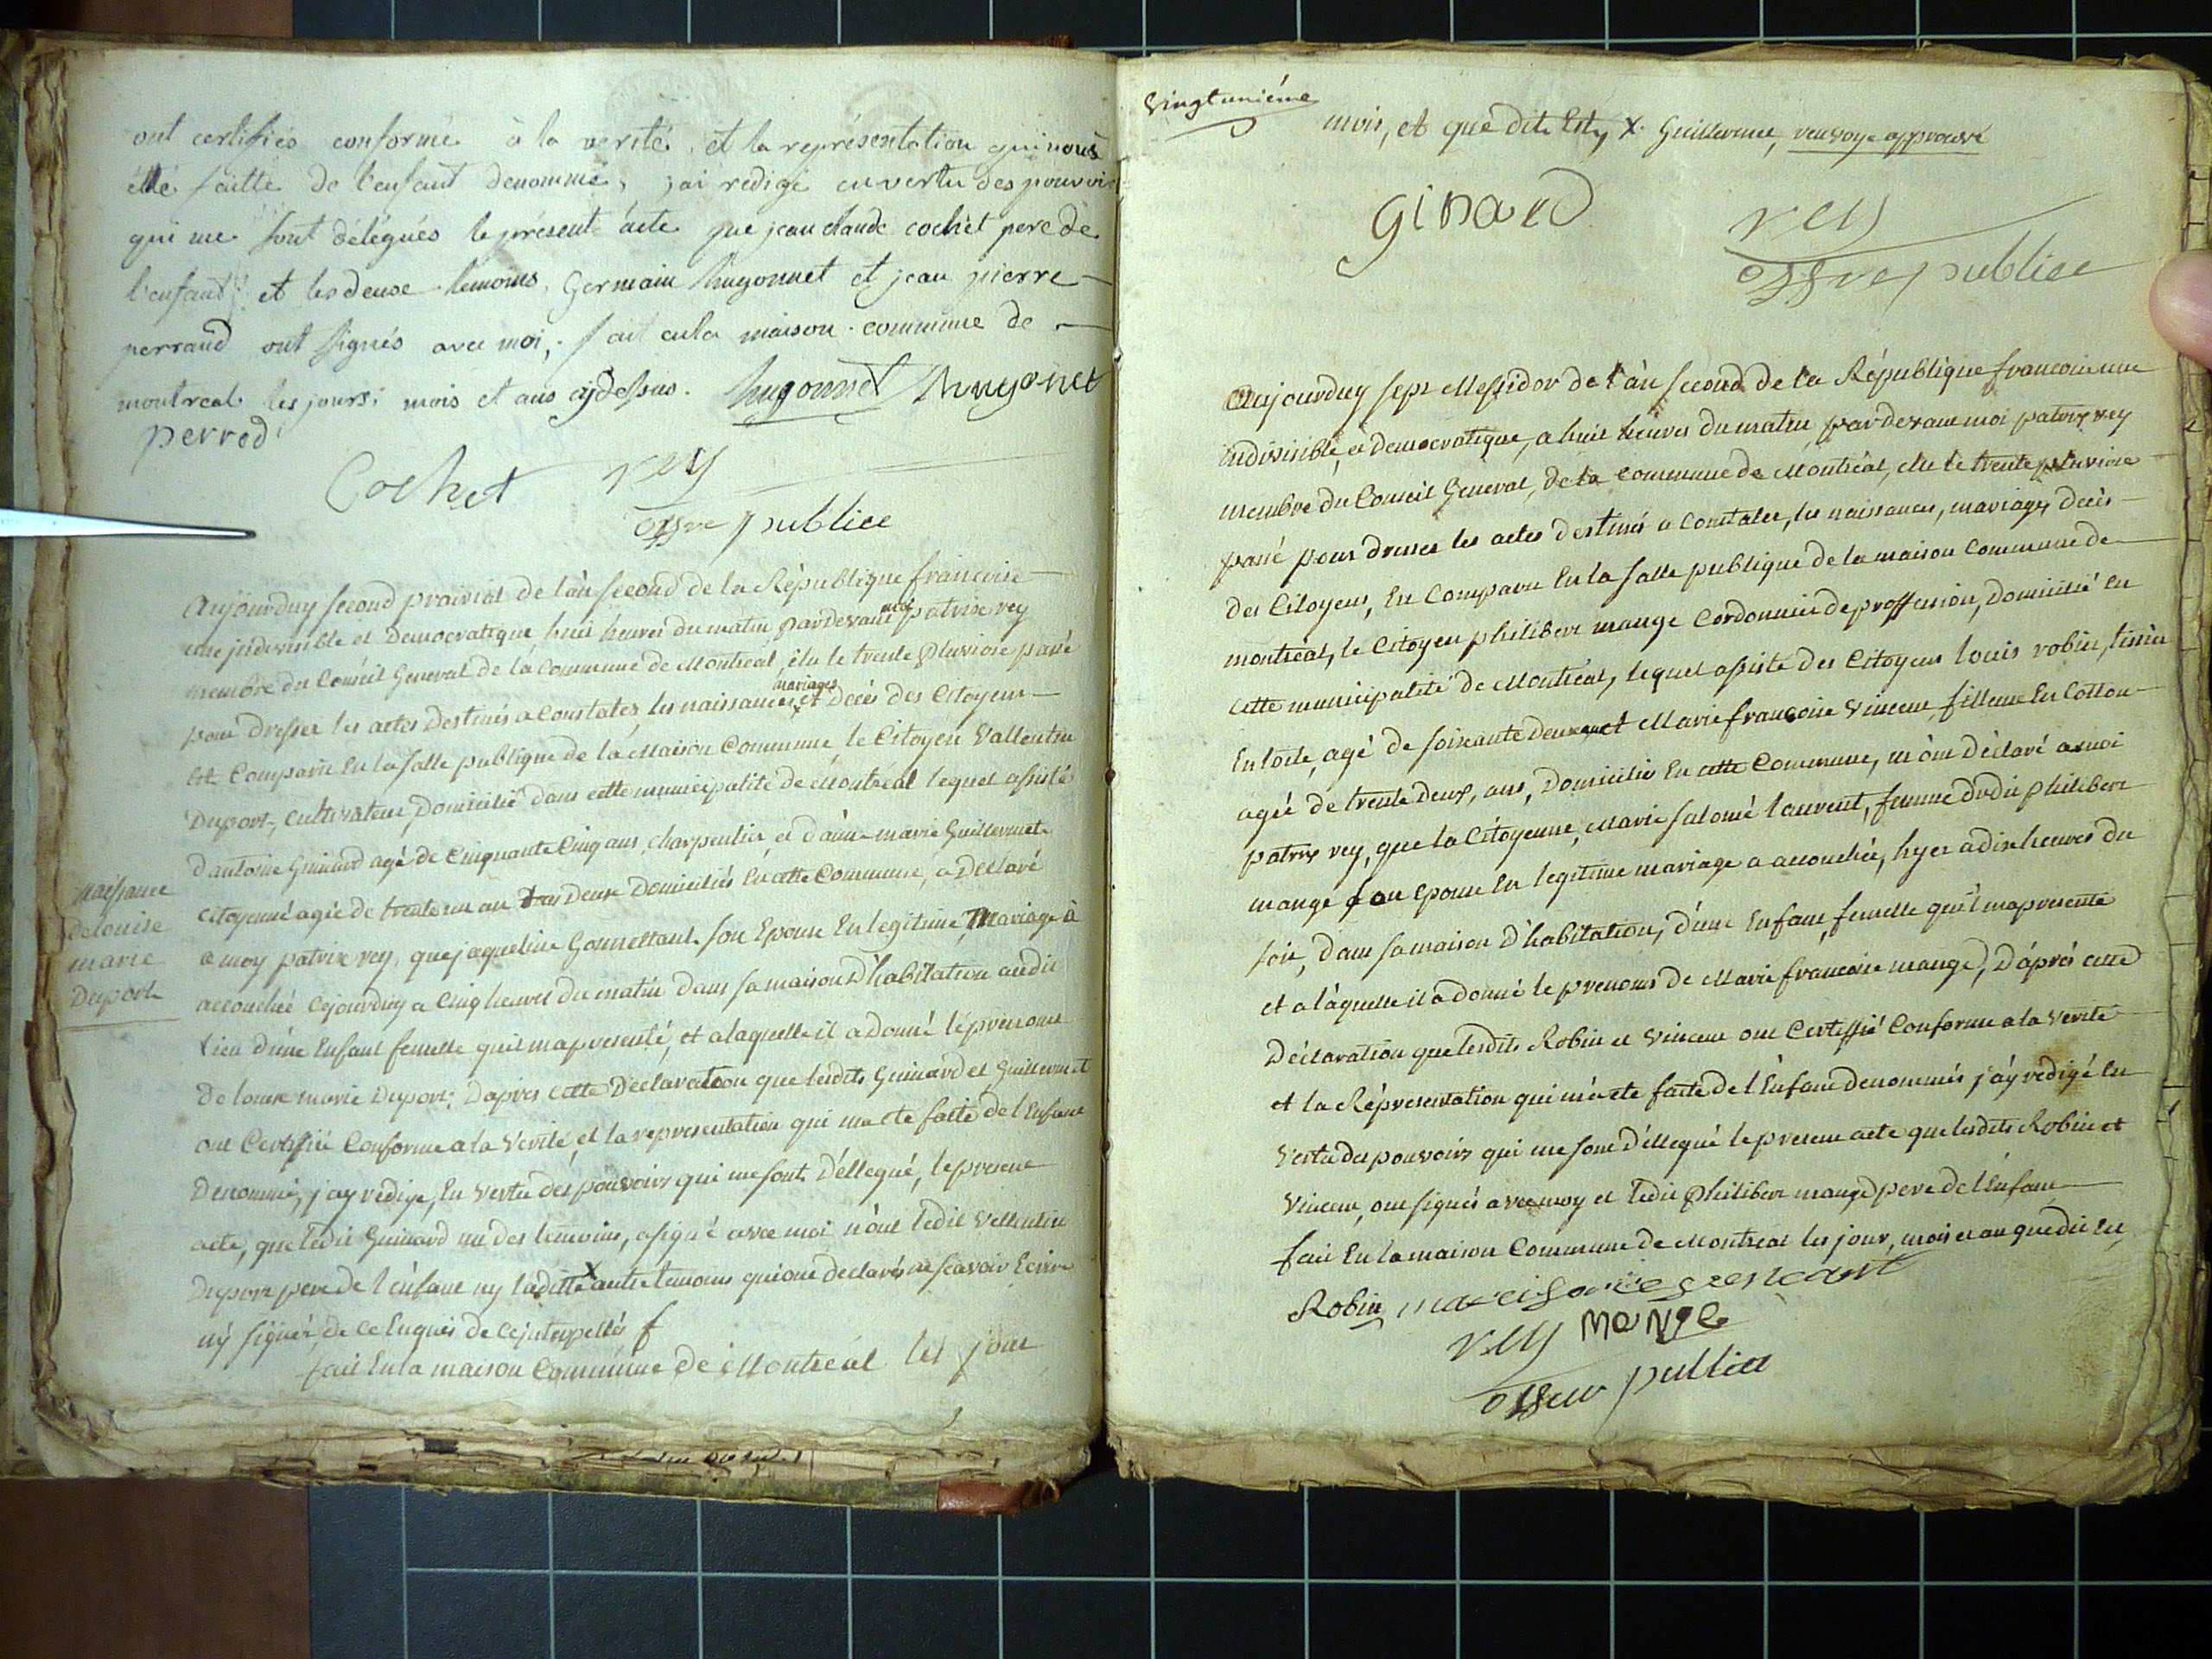 ont certifiés conforme à la verité, et la représentation qui nous à
été faitte de l'enfant denommé, j'ai redigé en vertu des pouvoirs
qui me sont délégués le présent acte que jean claude cochet pere de
l'enfant et les deuse temoins, Germain hugonnet et jean pierre
perraud ont signés avec moi, fait en la maison commune de
montreal les jours mois et ans cy dessus. hugonnet hugonet
perrod
Cochet rey
offre publice
Aujourduy second prairial de l'àn second de la République francoise
une jndivisible et Democratique, huit heures du matin pardevant moi patrix rey
membre du Conseil General de la Commune de Montréal, élu le trente pluviose passé
pour dresser les actes destinés a constater les naissances, mariages et Décès des Citoyens
Est Comparu En la salle publique de la Maison Commune le Citoyen Vallentin
Duport, Cultivateur, Domicilié dans cette municipalité de Montréal lequel assisté
d'antoine Guinard agé de Cinquante Cinq ans, Charpentier et d'anne marie Guillermet
Citoyenne agée de trente un an tous Deux Domiciliés En cette Commune, a Déclaré
a moy patrix rey, que jaqueline Gonnettant son Epouse En legitime Mariage à
Naissance
de louise
marie
Duport
accouchée cejourduy a Cinq heures du matin dans sa maison D'habitation audit
Lieu d'une Enfant femelle quil m'a presenté, et a laquelle il a Donné le prenoms
de louise marie Duport; Daprès cette Déclaration que lesdits Guinard et Guillermet
ont Certiffié Conforme a la Verité, et la representation qui ma eté faite de l'Enfant
Denommé, j'ay rédigé, En Vertu des pouvoirs qui me sont Déllegué, le present
acte, que ledit Guinard un des temoins, a signé avec moi non ledit Vallentin
Duport pere de l'enfant ny laditte X autre temoins qui ont declarés ne scavoir Ecrire
ny signer, de ce Enquis
fait En la maison Commune de Montréal les jour
Vingtunième
mois, et que dit Est, X. Guillermet, renvoye approuvé
Ginard rey
offre publice
Aujourduy sept Messidor de l'àn second de la République francoise une
indivisible, et Democratique, a huit heures du matin pardevant moi patrix rey
membre du Conseil General, de la Commune de Montréal, élu le trente pluviose
passé pour dresser les actes destinés a Constater, les naissances, mariages, decès
des Citoyens, Est Comparu En la salle publique de la maison Commune de
montréal, le Citoyen philibert mange Cordonnier de proffession, Domicilié En
cette municipalité de Montréal, lequel assisté des Citoyens louis robin, tissier
En toile, agé de soixante deux, et Marie françoise Vincent, filleuse En Cotton
agée de trente Deux, ans, Domiciliés En cette Commune, m'ont Déclaré a moi
patrix rey, que la Citoyenne, Marie salomé laurent, femme dudit philibert
mange son Epouse En legitime mariage a accouchée, hyer a dix heures du
soir, dans sa maison D'habitation, d'une Enfant, femelle qu'il ma presenté
et a laquelle il a donné le prenoms de Marie francoise mange, D'après cette
Déclaration que lesdits Robin et Vincent ont Certiffié Conforme a la Verité
et la Répresentation qui m'a eté faite de l'Enfant denommés j'ay rédigé En
Vertu des pouvoirs qui me sont Déllegué le present acte que lesdits Robin et
Vincent, ont signés avec moy et ledit Philibert mange pere de l'Enfant
fait En la maison Commune de Montréal les jour, mois et an que dit Est,
Robin
rey mange
publice